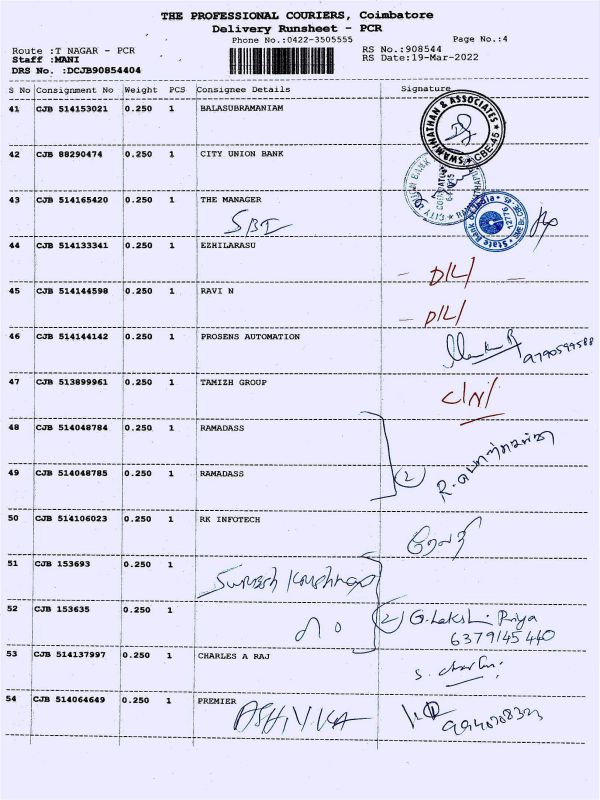 THE PROFESSIONAL COURIERS, Coimbatore
Delivery Runsheet - PCR
Phone No.:0422-3505555 Page No.:4
Route :T NAGAR - PCR RS No.:908544
Staff :MANI RS Date:19-Mar-2022
DRS No. :DCJB90854404
S No Consignment No Weight PCS Consignee Details Signature
41 CJB 514153021 0.250 1 BALASUBRAMANIAM
SWAMINATHAN & ASSOCIATES * CBE-45 *
42 CJB 88290474 0.250 1 CITY UNION BANK
CITY UNION BANK
43 CJB 514165420 0.250 1 THE MANAGER
SBI
State Bank of India
12776
44 CJB 514133341 0.250 1 EZHILARASU
D/L/
45 CJB 514144598 0.250 1 RAVI N
D/L/
46 CJB 514144142 0.250 1 PROSENS AUTOMATION
9790599588
47 CJB 513899961 0.250 1 TAMIZH GROUP
C/N/
48 CJB 514048784 0.250 1 RAMADASS
49 CJB 514048785 0.250 1 RAMADASS
2
50 CJB 514106023 0.250 1 RK INFOTECH
51 CJB 153693 0.250 1
52 CJB 153635 0.250 1
2 G. Lakshmi Priya
6379145440
53 CJB 514137997 0.250 1 CHARLES A RAJ
54 CJB 514064649 0.250 1 PREMIER
ASHIVKA